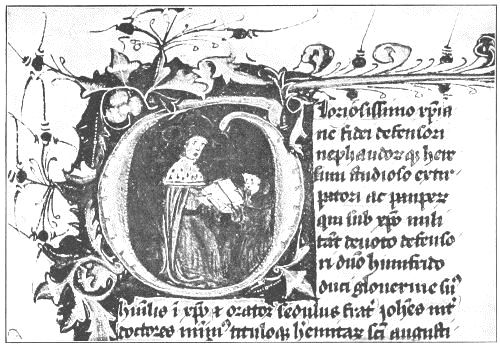 Gloriosissimo xp̄ia
ne fidei defensori
nephandorūq; here
sum studioso extir
patori ac pauperū
qui sub xp̄o mili
tāt deuoto defenso
ri dn̄o humfrido
duci glouernie su'
humilis ī xp̄o & orator sedulus frat' Joh̄es int'
doctores mīm' tituloq; h'mitar' sc̄i augusti